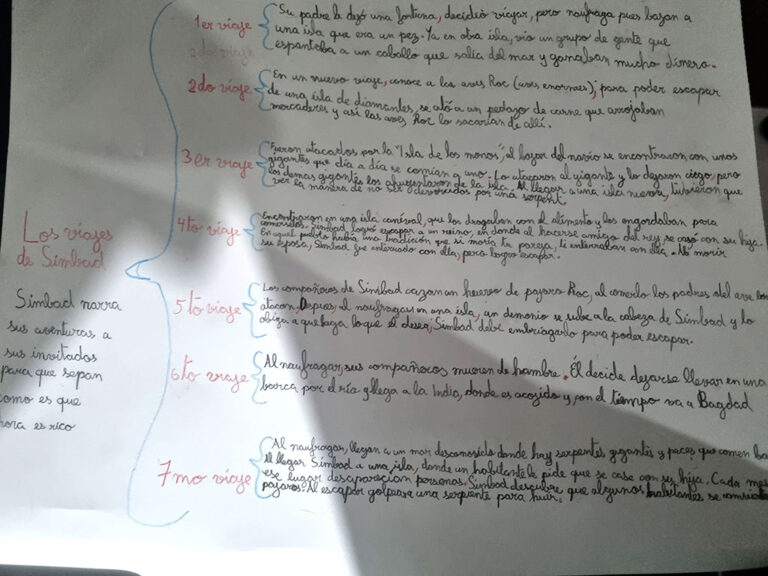 1er viaje
Su padre le dejó una fortuna, decidió viajar, pero naufraga pues bajan a
una isla que era un pez. Ya en otra isla, vio un grupo de gente que
espantaba a un caballo que salía del mar y ganaban mucho dinero.
2do viaje
2do viaje
En un nuevo viaje, conoce a las aves Roc (aves enormes); para poder escapar
de una isla de diamantes, se ató a un pedazo de carne que arrojaban
mercaderes y así las aves Roc lo sacarían de allí.
3er viaje
Fueron atacados por la "Isla de los monos", al bajar del navío se encontraron con unos
gigantes que día a día se comían a uno. Lo atacaron al gigante y lo dejaron ciego, pero
los demas gigantes los ahuyentaron de la isla. Al llegar a una isla nueva, tubieron que
ver la manera de no ser devorados por una serpent.
Los viajes
de Simbad
4to viaje
Encontraron en una isla caníval, que los drogaban con el alimento y los engordaban para
comerselos. Simbad logró escapar a un reino, en donde al hacerse amigo del rey se casó con su hija.
En aquel pueblo había una tradición que si moría tu pareja, te enterraban con ella. Al morir
su esposa, Simbad fue enterrado con ella, pero logro escapar.
Simbad narra
sus aventuras a
sus invitados
para que sepan
como es que
hora es rico
5to viaje
Los compañeros de Simbad cazan un huevo de pajaro Roc, al comerlo los padres del ave los
atacan. Despues, al naufragar en una isla, un demonio se sube a la cabeza de Simbad y lo
obliga a que haga lo que el desea, Simbad debe embriagarlo para poder escapar.
6to viaje
Al naufragar, sus compañeros mueren de hambre. Él decide dejarse llevar en una
barca por el río y llega a la India, donde es acogido y con el tiempo va a Bagdad
7mo viaje
Al naufragar, llegan a un mar desconocido donde hay serpentes gigantes y peces que comen ba
Al llegar Simbad a una isla, donde un habitante le pide que se case con su hija. Cada mes
ese lugar desaparecian personas. Simbad descubre que algunos habitantes se
pajaros. Al escapar golpea a una serpiente para huir.